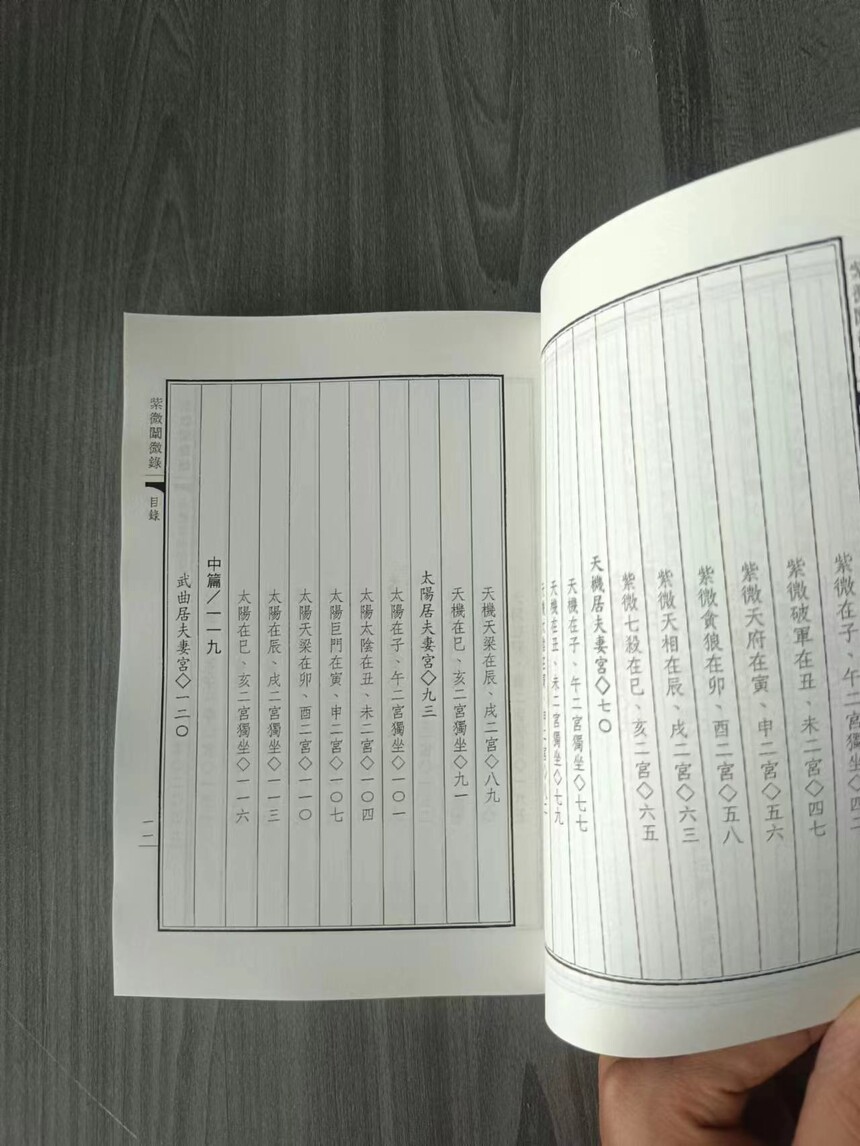 紫微在子、午二宮獨坐◇四二
紫微破軍在丑、未二宮◇四七
紫微天府在寅、申二宮◇五六
紫微貪狼在卯、酉二宮◇五八
紫微天相在辰、戌二宮◇六三
紫微七殺在巳、亥二宮◇六五
天機居夫妻宮◇七〇
天機在子、午二宮獨坐◇七七
天機在丑、未二宮獨坐◇七九
天機天梁在辰、戌二宮◇八九
天機在巳、亥二宮獨坐◇九一
太陽居夫妻宮◇九三
太陽在子、午二宮獨坐◇一〇一
太陽太陰在丑、未二宮◇一〇四
太陽巨門在寅、申二宮◇一〇七
太陽天梁在卯、酉二宮◇一一〇
太陽在辰、戌二宮獨坐◇一一三
太陽在巳、亥二宮獨坐◇一一六
中篇/一一九
武曲居夫妻宮◇一二〇
紫微闡微錄
目錄